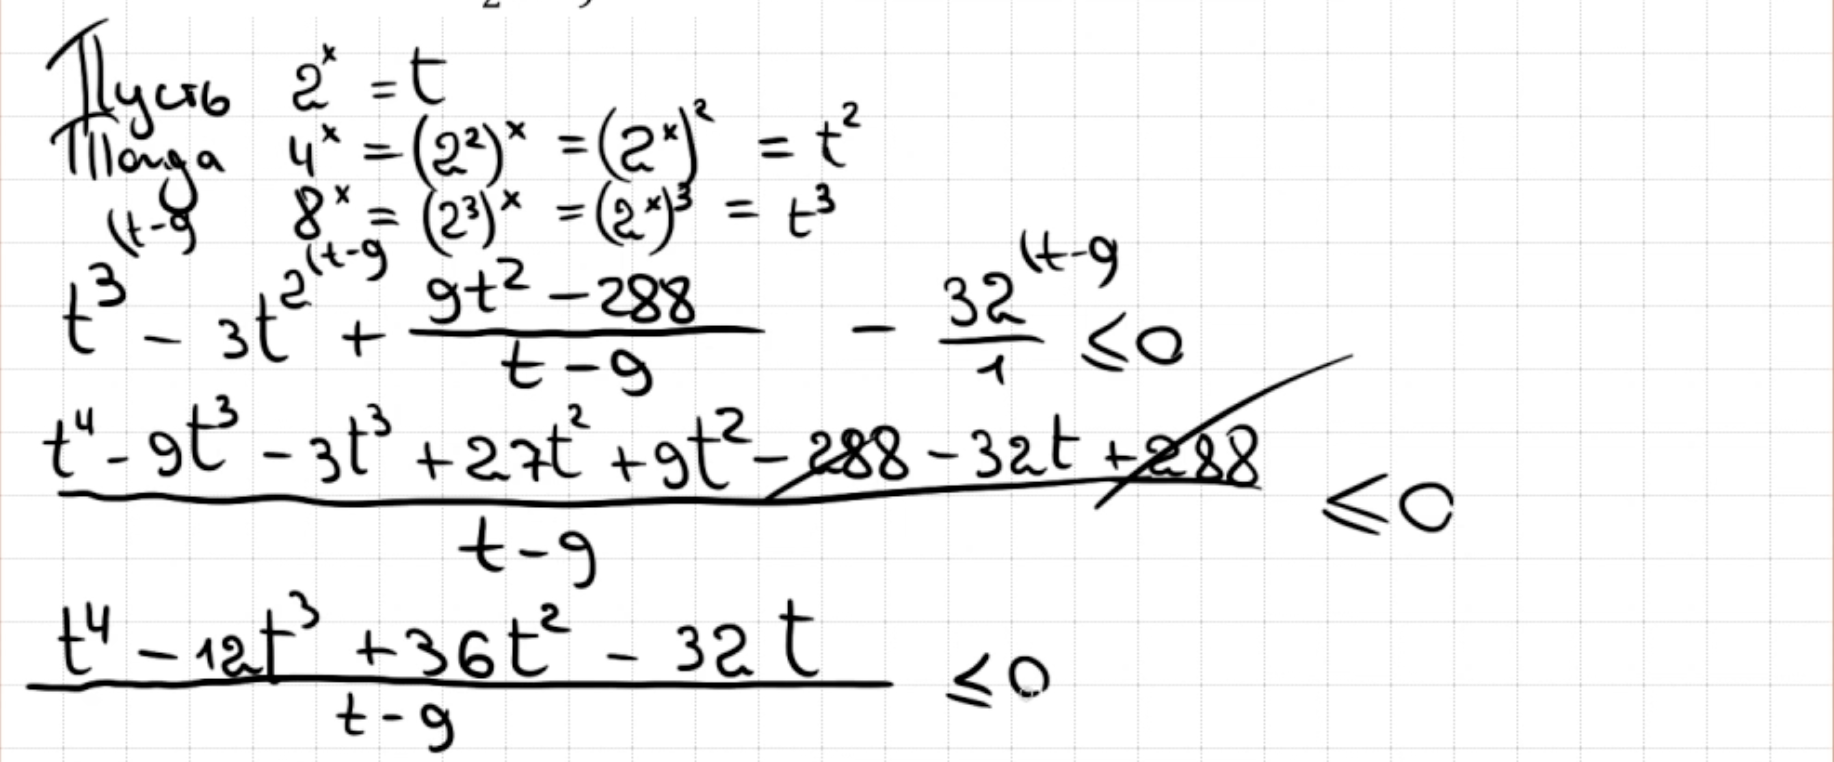 Пусть 2^x = t
Тогда 4^x = (2^2)^x = (2^x)^2 = t^2
8^x = (2^3)^x = (2^x)^3 = t^3
t^3^(t-9 - 3t^2^(t-9 + (9t^2 - 288)/(t - 9) - 32^(t-9/1 ≤ 0
(t^4 - 9t^3 - 3t^3 + 27t^2 + 9t^2 - 288 - 32t + 288)/(t - 9) ≤ 0
(t^4 - 12t^3 + 36t^2 - 32t)/(t - 9) ≤ 0